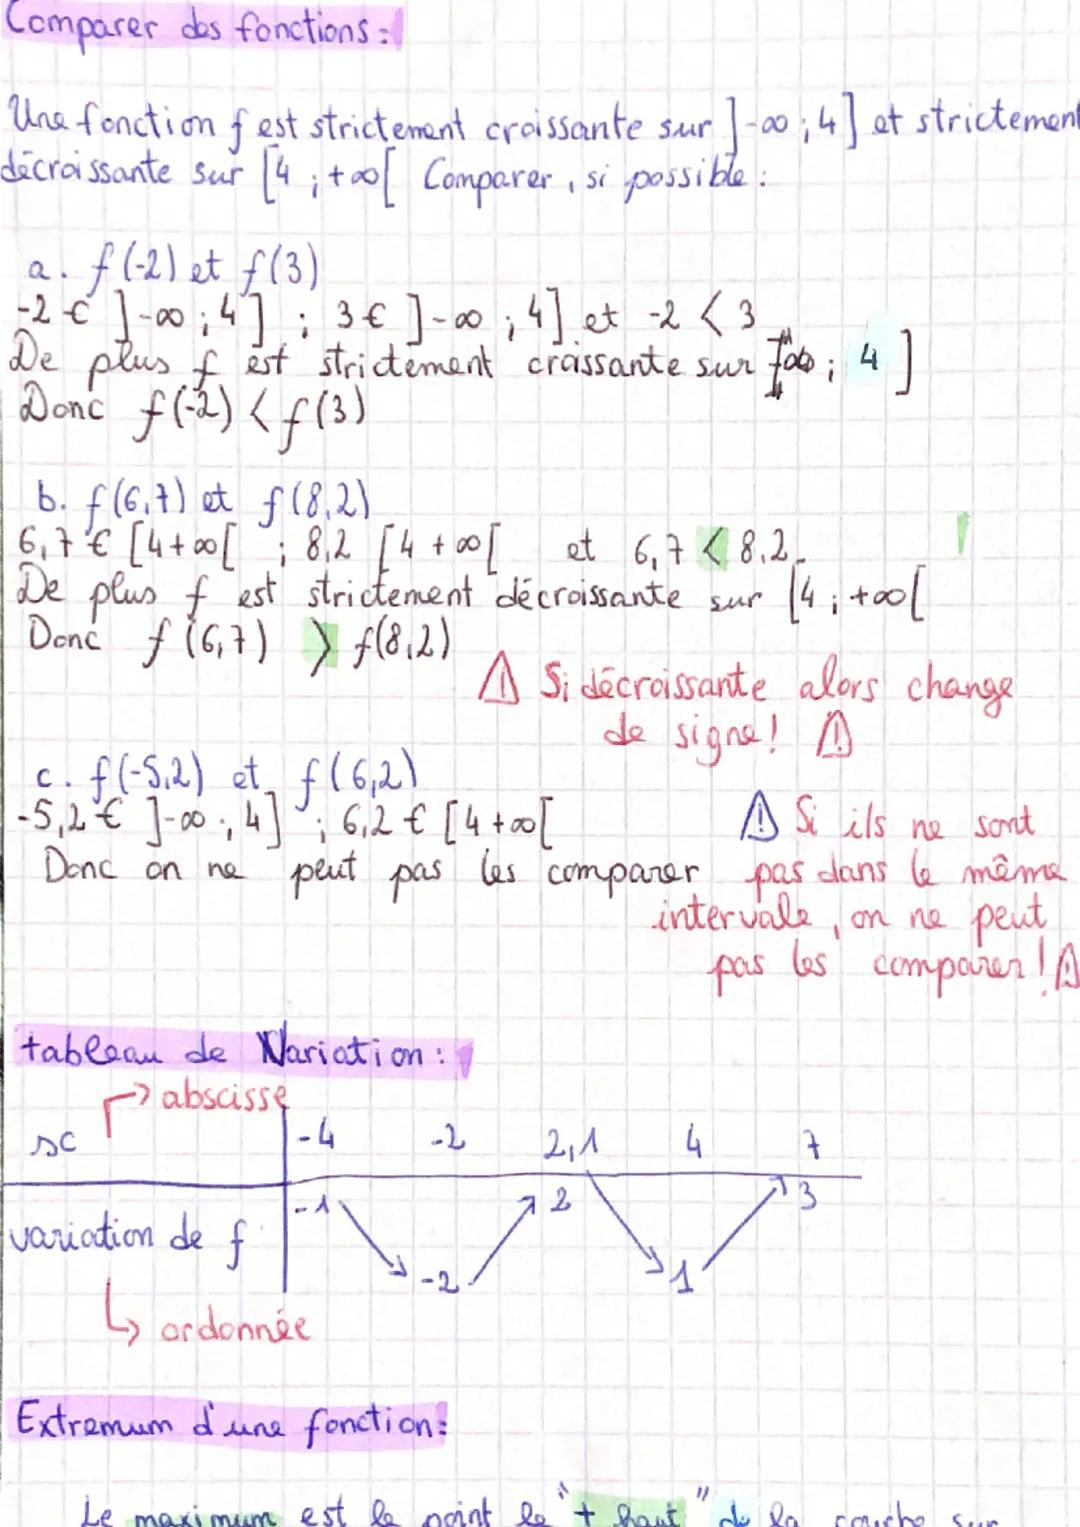 Comparer des fonctions :
Une fonction f est strictement croissante sur ]-∞ ; 4] et strictement
décroissante sur [4 ; +∞[ Comparer, si possible :
a. f(-2) et f(3)
-2 € ]-∞ ; 4] ; 3 € ]-∞ ; 4] et -2 < 3
De plus f est strictement croissante sur ; 4 ]
Donc f(-2) < f(3)
b. f(6,7) et f(8,2)
6,7 € [4 +∞[ ; 8,2 [4 +∞[ et 6,7 < 8,2
De plus f est strictement décroissante sur [4 ; +∞[
Donc f(6,7) > f(8,2)
⚠ Si décroissante alors change
de signe ! ⚠
c. f(-5,2) et f(6,2)
-5,2 € ]-∞ ; 4] ; 6,2 € [4 +∞[
Donc on ne peut pas les comparer
⚠ Si ils ne sont
pas dans le même
intervale, on ne peut
pas les comparer ! ⚠
tableau de Variation :
→ abscisse
x -4 -2 2,1 4 7
variation de f -1 -2 2 1 3
↳ ordonnée
Extremum d'une fonction :
Le maximum est le point le "+ haut" de la courbe sur